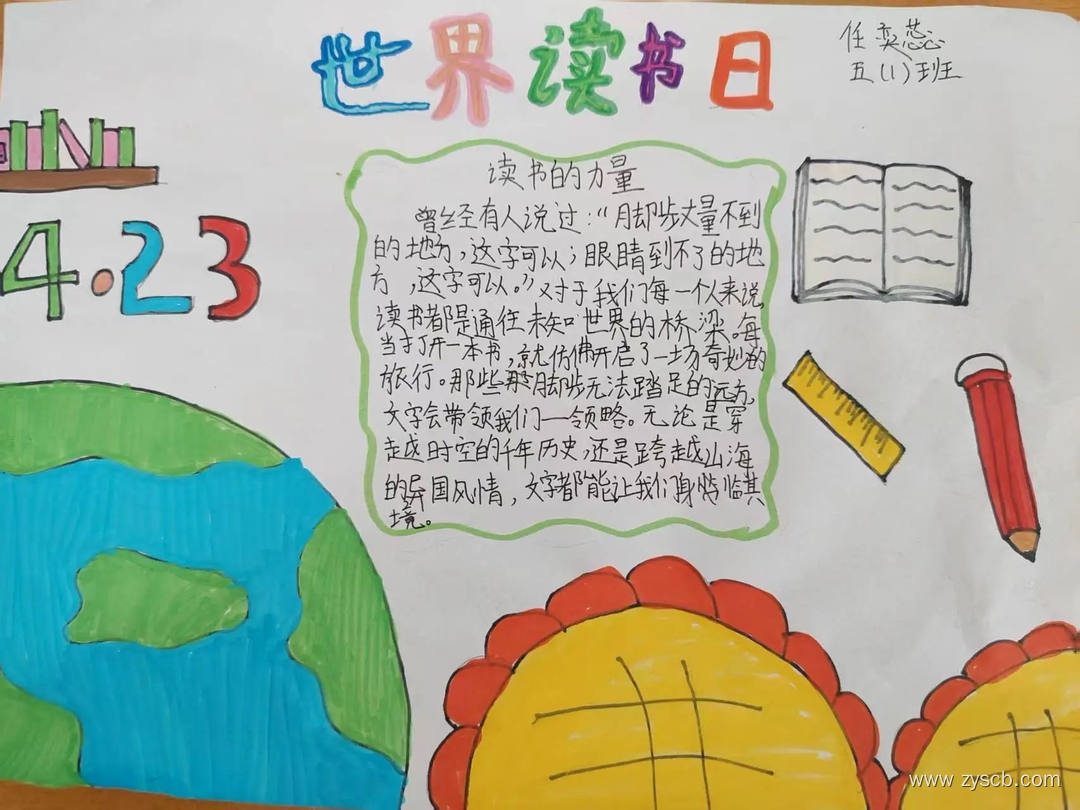 世界读书日
任奕蕊
五(1)班
4·23
读书的力量
曾经有人说过:“脚步丈量不到
的地方,这字可以;眼睛到不了的地
方,这字可以。”对于我们每一个人来说,
读书都是通往未知世界的桥梁。每
当打开一本书,就仿佛开启了一场奇妙的
旅行。那些那脚步无法踏足的远方,
文字会带领我们一领略。无论是穿
走越时空的千年历史,还是跨越山海
的异国风情,文字都能让我们身临其
境。
www.zyscb.com